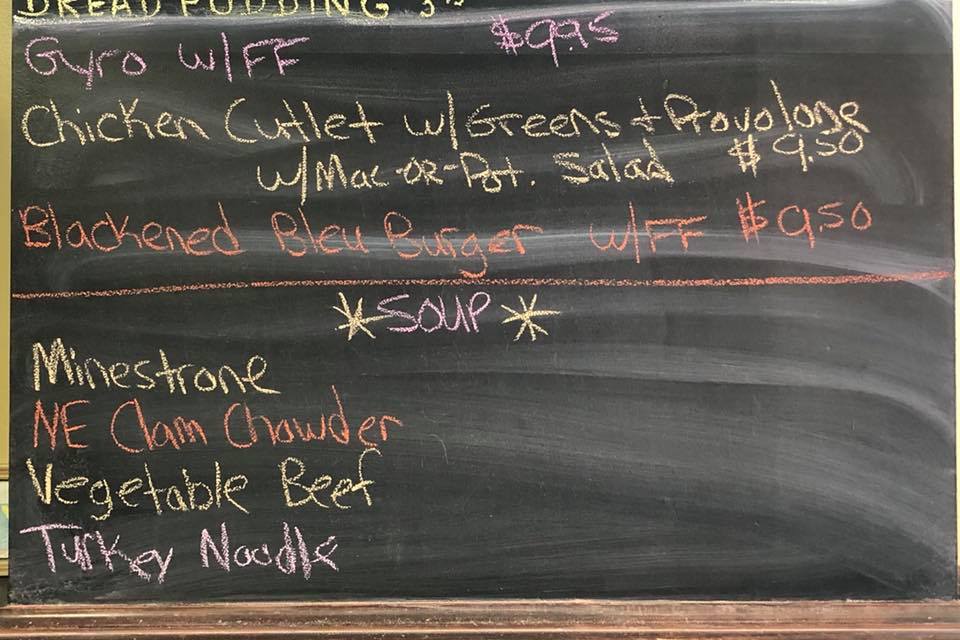 BREAD PUDDING
Gyro w/FF $9.95
Chicken Cutlet w/Greens + Provolone
w/Mac-or-Pot. Salad $9.50
Blackened Bleu Burger w/FF $9.50
*SOUP*
Minestrone
NE Clam Chowder
Vegetable Beef
Turkey Noodle